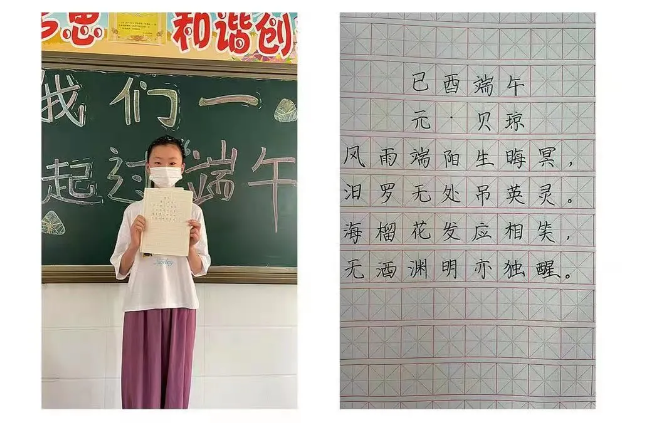 思 和谐创
我们一
起过端午
已酉端午
元·贝琼
风雨端阳生晦冥，
汨罗无处吊英灵。
海榴花发应相笑，
无酒渊明亦独醒。